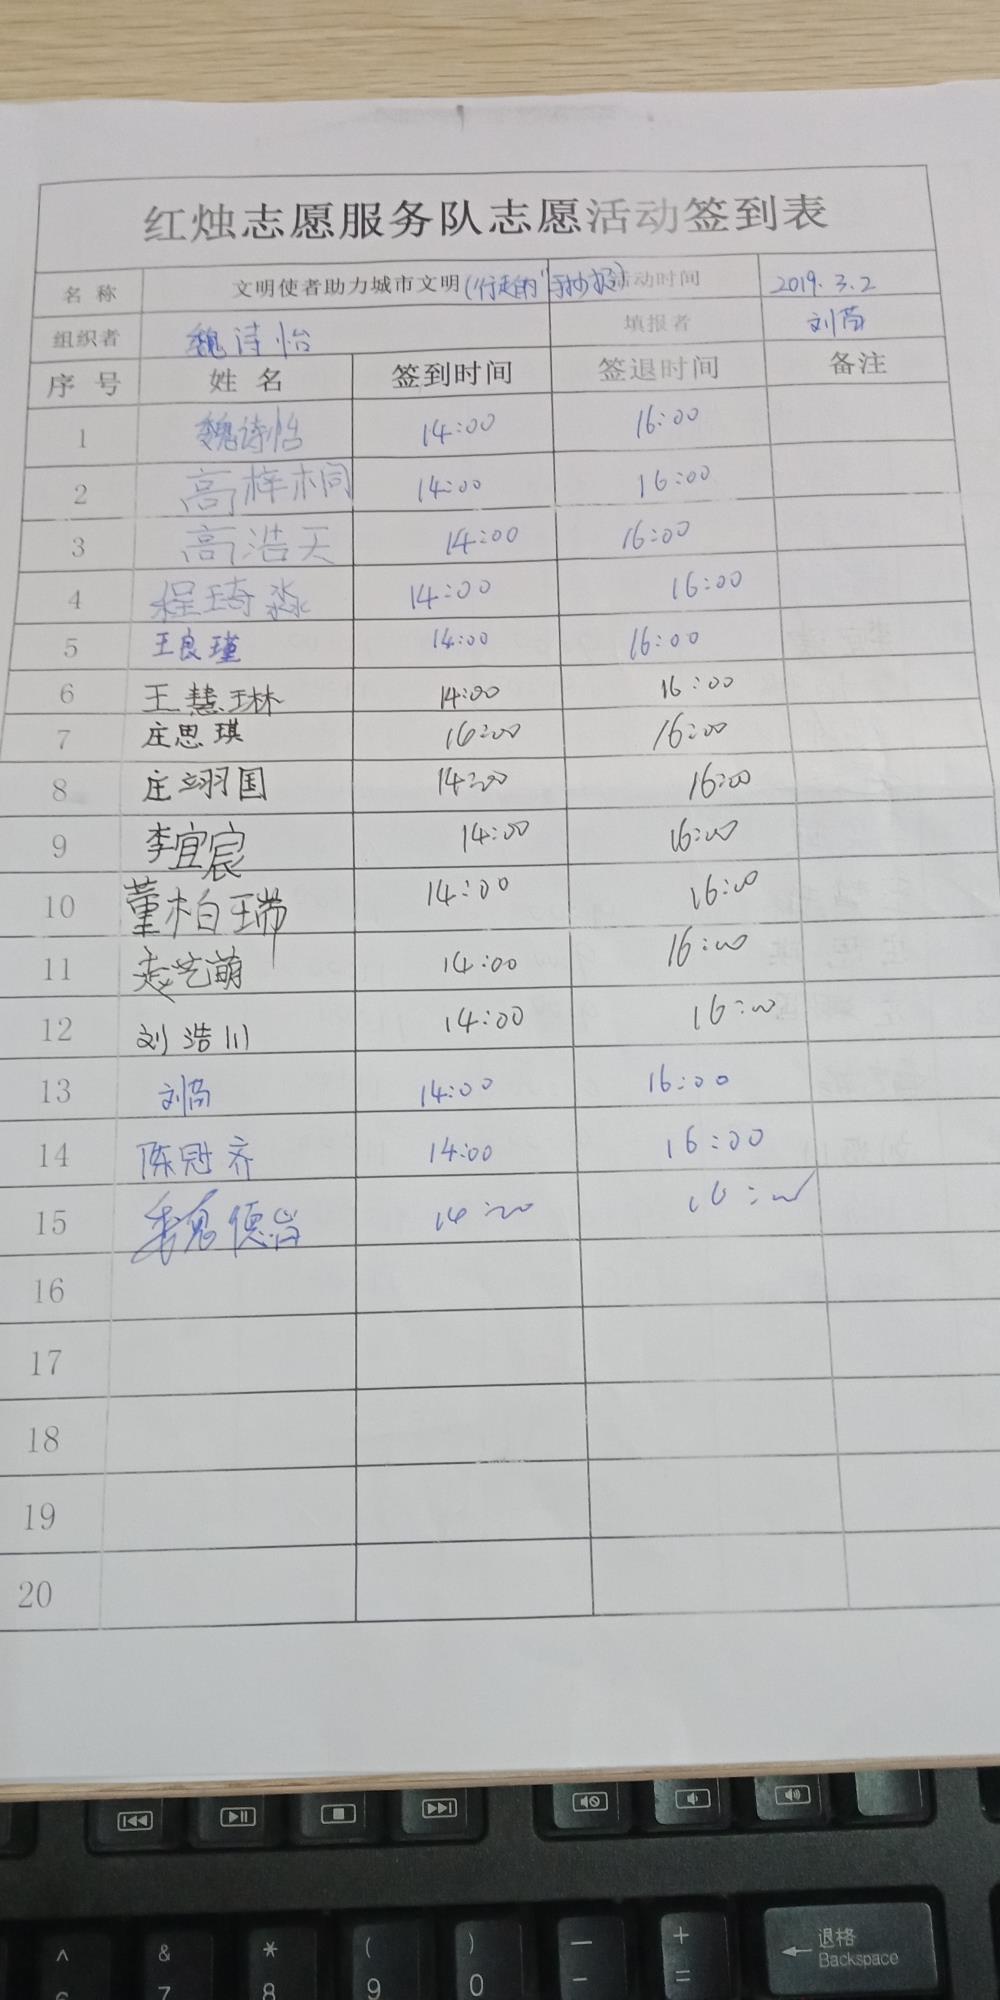 红烛志愿服务队志愿活动签到表
名称 文明使者助力城市文明(行走的"手抄报) 活动时间 2019.3.2
组织者 魏诗怡 填报者
序号 姓名 签到时间 签退时间 备注
1 魏诗怡 14:00 16:00
2 高梓桐 14:00 16:00
3 高浩天 14:00 16:00
4 程琦淼 14:00 16:00
5 王良瑾 14:00 16:00
6 王慧琳 14:00 16:00
7 庄思琪 16:00 16:00
8 庄翊国 14:00 16:00
9 李宜宸 14:00 16:00
10 董柏瑞 14:00 16:00
11 艺萌 14:00 16:00
12 刘浩川 14:00 16:00
13 14:00 16:00
14 陈冠齐 14:00 16:00
15 魏德 14:00 16:00
16
17
18
19
20
^ & * ( ) — +
6 7 8 9 0 - =
退格
Backspace